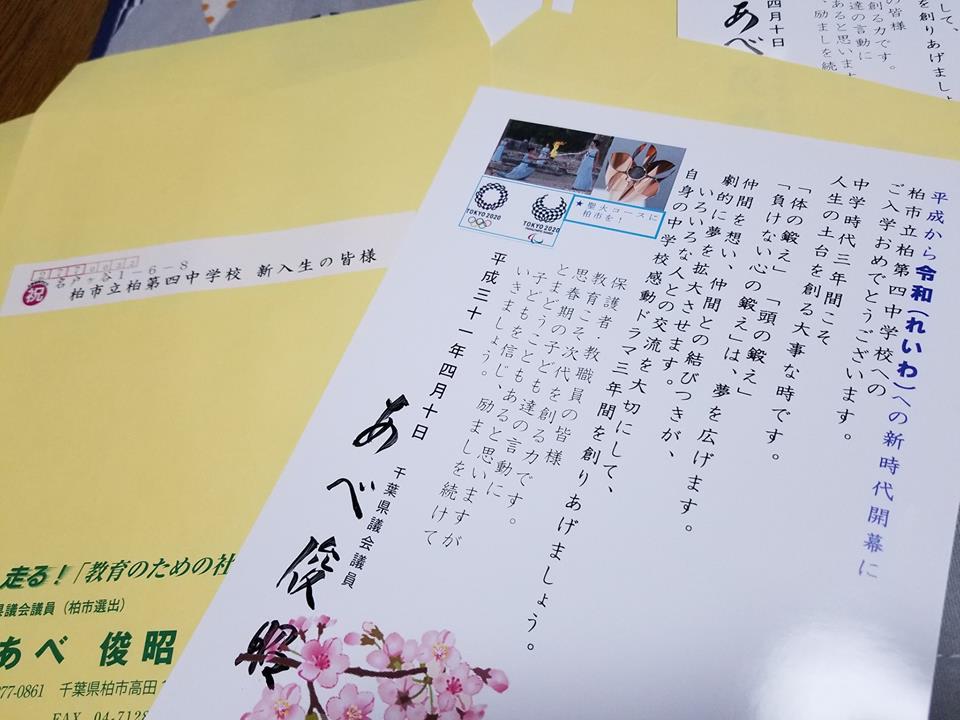 平成から令和(れいわ)への新時代開幕に
柏市立柏第四中学校への
ご入学おめでとうございます。
中学時代三年間こそ
人生の土台を創る大事な時です。
「体の鍛え」「頭の鍛え」
「負けない心の鍛え」は、夢を広げます。
仲間を想い、仲間との結びつきが、
劇的に夢を拡大させます。
いろいろな人との交流を大切にして、
自身の中学校感動ドラマ三年間を創りあげましょう。
保護者・教職員の皆様
教育こそ次代を創る力です。
思春期の子ども達の言動に
とまどうこともあると思いますが
子どもを信じ、励ましを続けて
いきましょう。
平成三十一年四月十日
千葉県議会議員
あべ俊昭
TOKYO 2020
TOKYO 2020
★聖火コースに
柏市を!
名戸ヶ谷1-6-8
祝
柏市立柏第四中学校 新入生の皆様
走る!「教育のための社
県議会議員(柏市選出)
あべ 俊昭
277-0861 千葉県柏市高田
FAX 04-7128
四月十日
あべ
して、
を創りあげましょ
皆様
創る力です。
達の言動に
あると思います
励ましを続